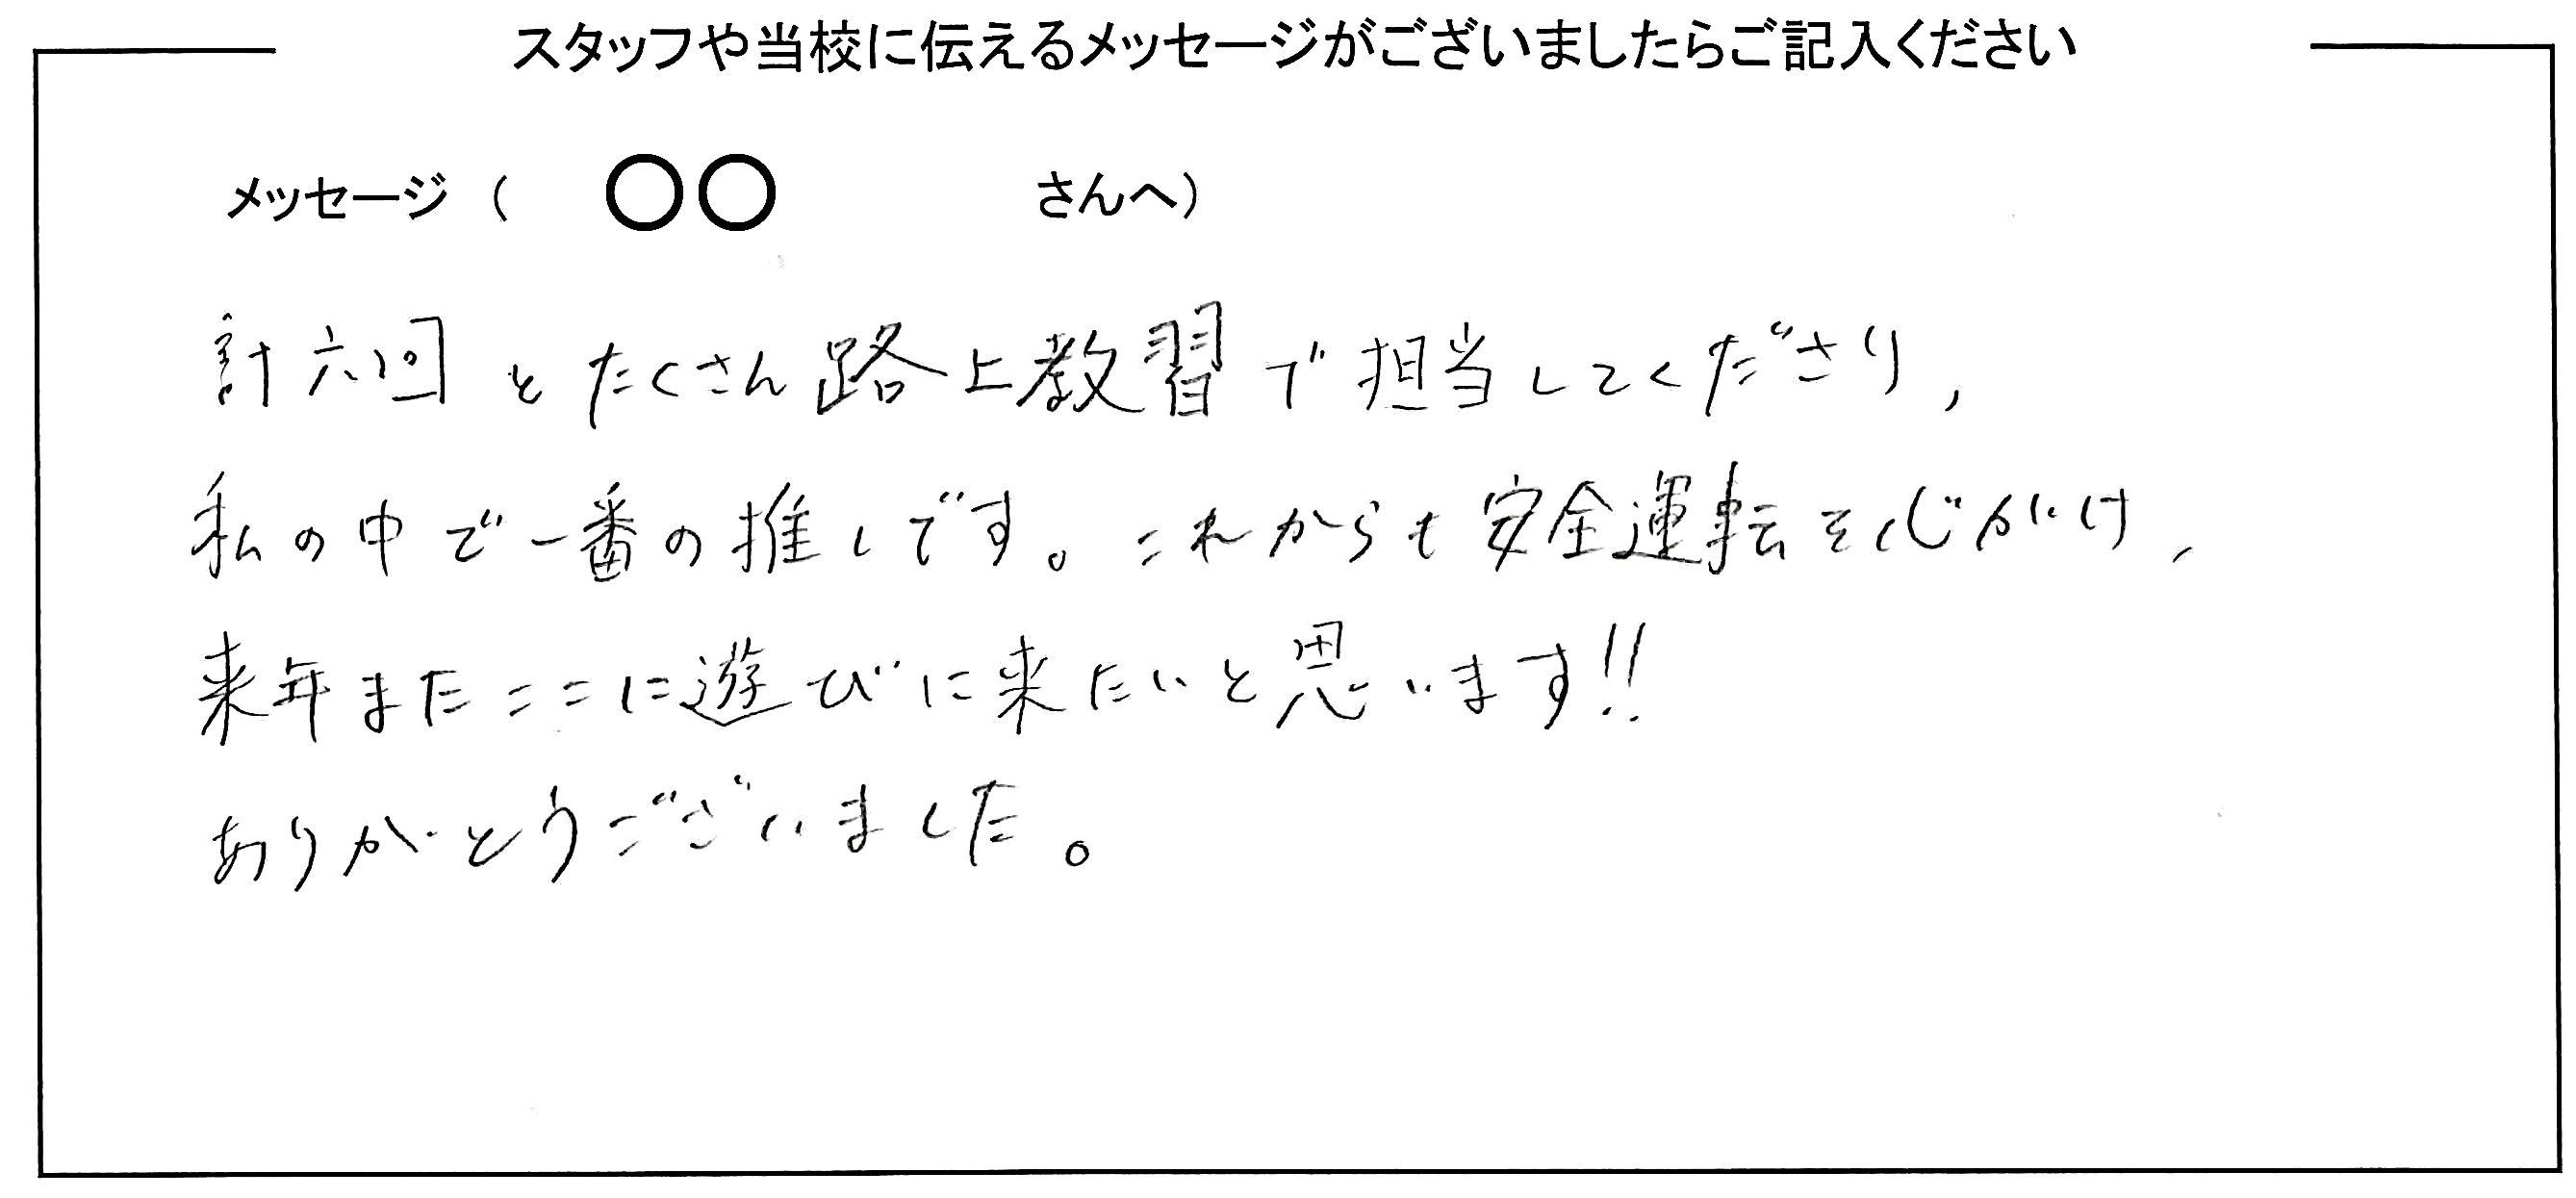 スタッフや当校に伝えるメッセージがございましたらご記入ください
メッセージ（ 〇〇 さんへ）
計六回とたくさん路上教習で担当してくださり,
私の中で一番の推しです。これからも安全運転を心がけ,
来年またここに遊びに来たいと思います!!
ありがとうございました。